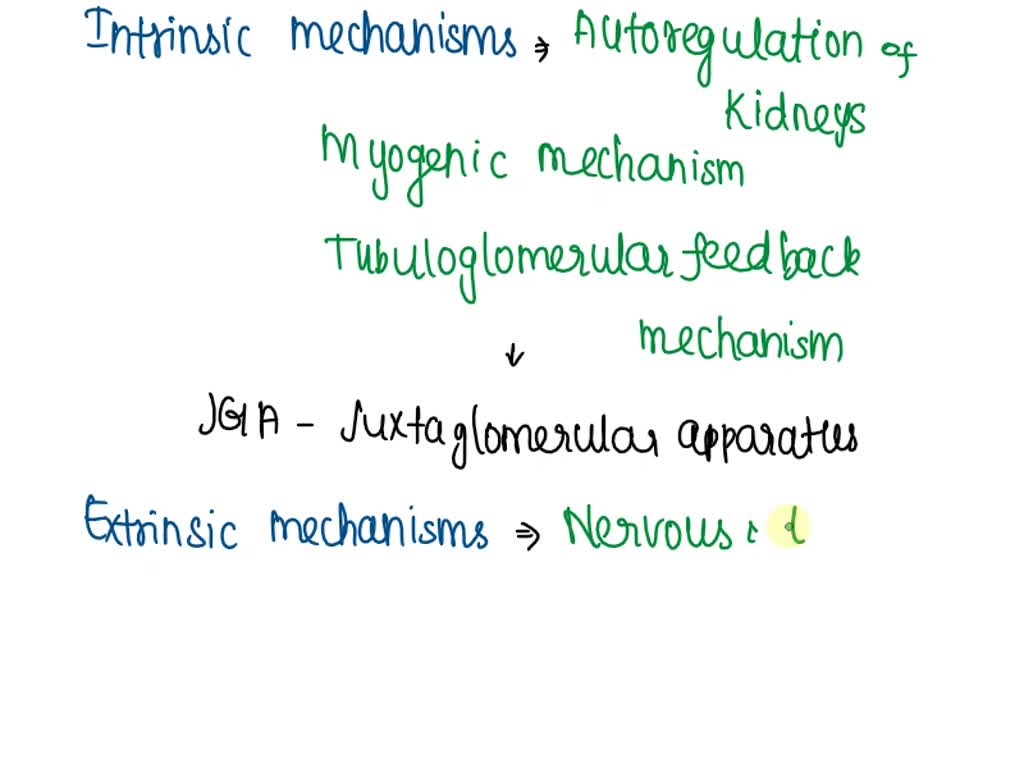 Intrinsic mechanisms ⇒ Autoregulation of
Kidneys
Myogenic mechanism
Tubuloglomerular feedback
mechanism
↓
JGA - Juxtaglomerular apparatus
Extrinsic mechanisms ⇒ Nervous